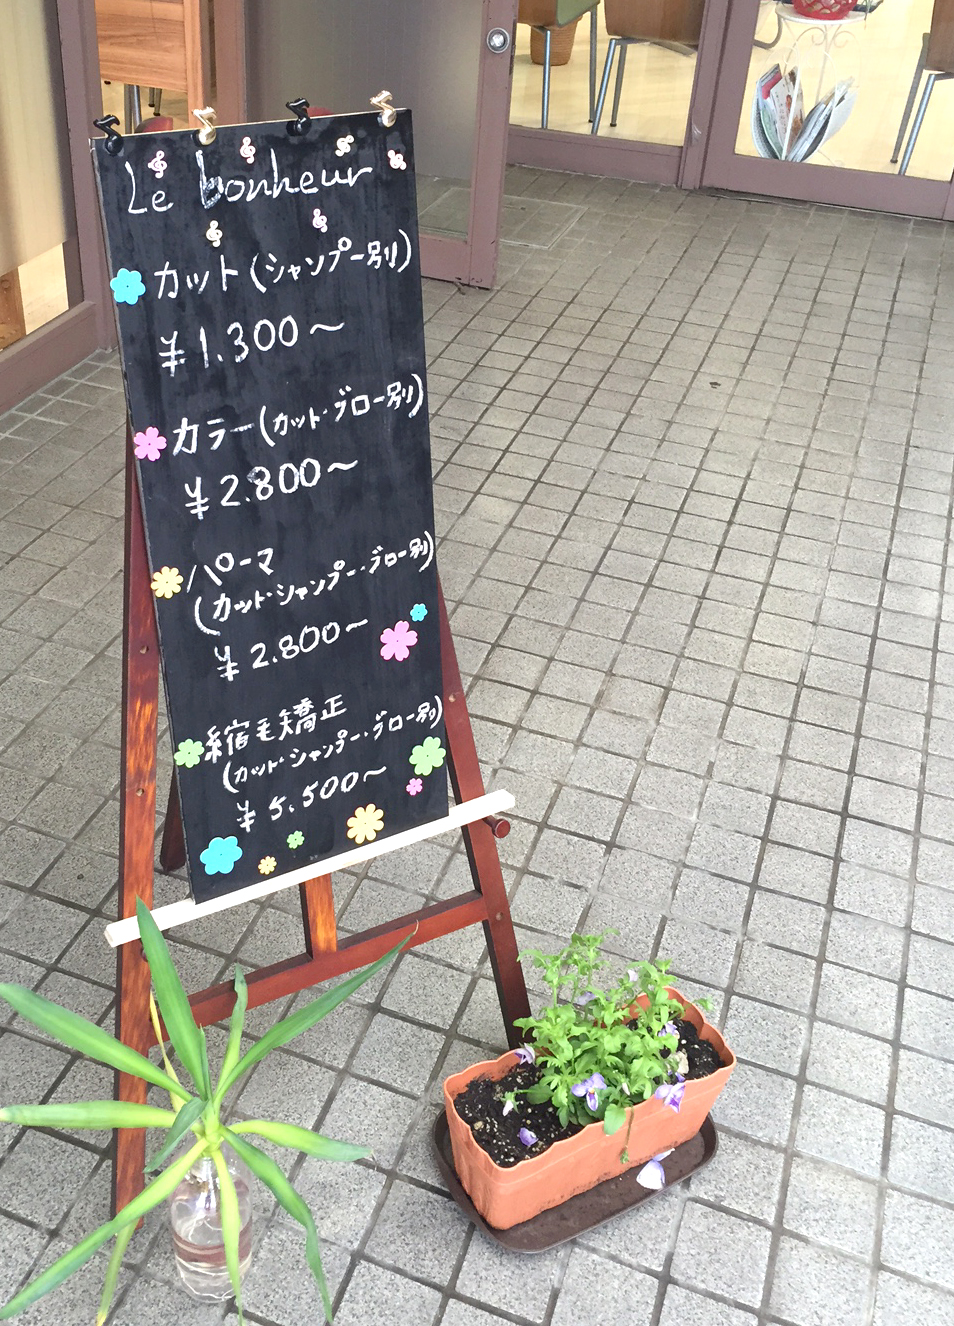 Le bonheur
カット(シャンプー別)
¥1.300～
カラー(カット・ブロー別)
¥2.800～
パーマ
(カット・シャンプー・ブロー別)
¥2.800～
縮毛矯正
(カット・シャンプー・ブロー別)
¥5.500～